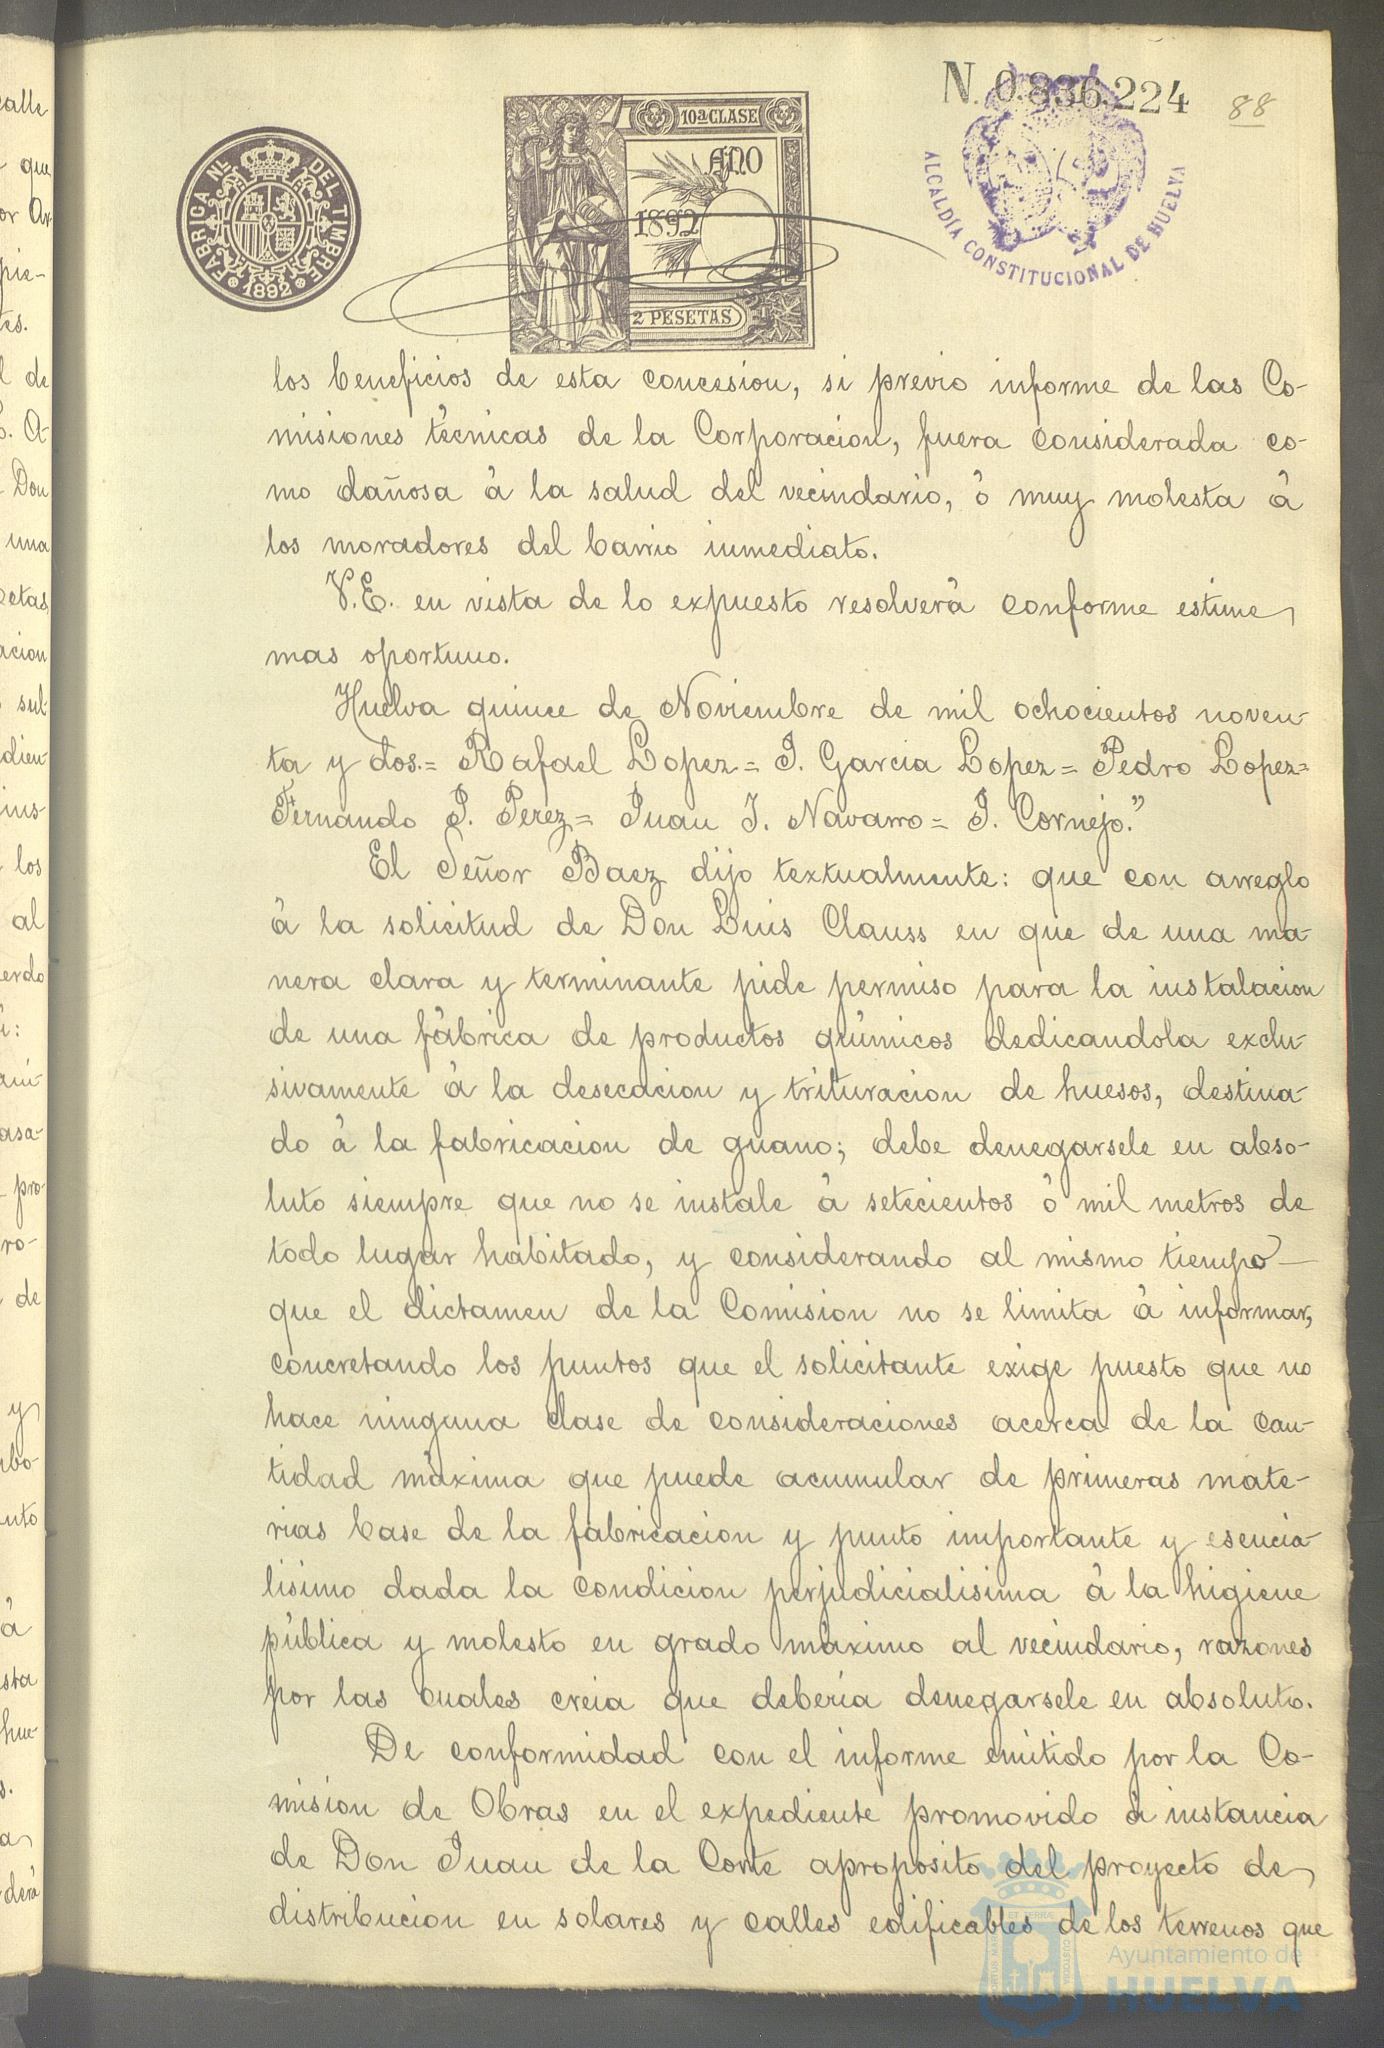 N. 0.836.224
88
10ª CLASE
AÑO
1892
2 PESETAS
FABRICA NL DEL TIMBRE
1892
ALCALDÍA CONSTITUCIONAL DE HUELVA
los beneficios de esta concesion, si previo informe de las Co-
misiones técnicas de la Corporacion, fuera considerada co-
mo dañosa á la salud del vecindario, ó muy molesta á
los moradores del barrio inmediato.
V.E. en vista de lo expuesto resolverá conforme estime
mas oportuno.
Huelva quince de Noviembre de mil ochocientos noven-
ta y dos.= Rafael Lopez= J. Garcia Lopez= Pedro Lopez=
Fernando P. Perez= Juan J. Navarro= J. Cornejo."
El Señor Baez dijo textualmente: que con arreglo
á la solicitud de Don Luis Clauss en que de una ma-
nera clara y terminante pide permiso para la instalacion
de una fábrica de productos químicos dedicandola exclu-
sivamente á la desecacion y trituracion de huesos, destina-
do á la fabricacion de guano; debe denegarsele en abso-
luto siempre que no se instale á setecientos ó mil metros de
todo lugar habitado, y considerando al mismo tiempo
que el dictamen de la Comision no se limita á informar,
concretando los puntos que el solicitante exige puesto que no
hace ninguna clase de consideraciones acerca de la can-
tidad máxima que puede acumular de primeras mate-
rias base de la fabricacion y punto importante y esencia-
lisimo dada la condicion perjudicialisima á la higiene
pública y molesto en grado máximo al vecindario, razones
por las cuales creia que debería denegarsele en absoluto.
De conformidad con el informe emitido por la Co-
mision de Obras en el expediente promovido á instancia
de Don Juan de la Corte aproposito del proyecto de
distribucion en solares y calles edificables de los terrenos que
Ayuntamiento de
HUELVA